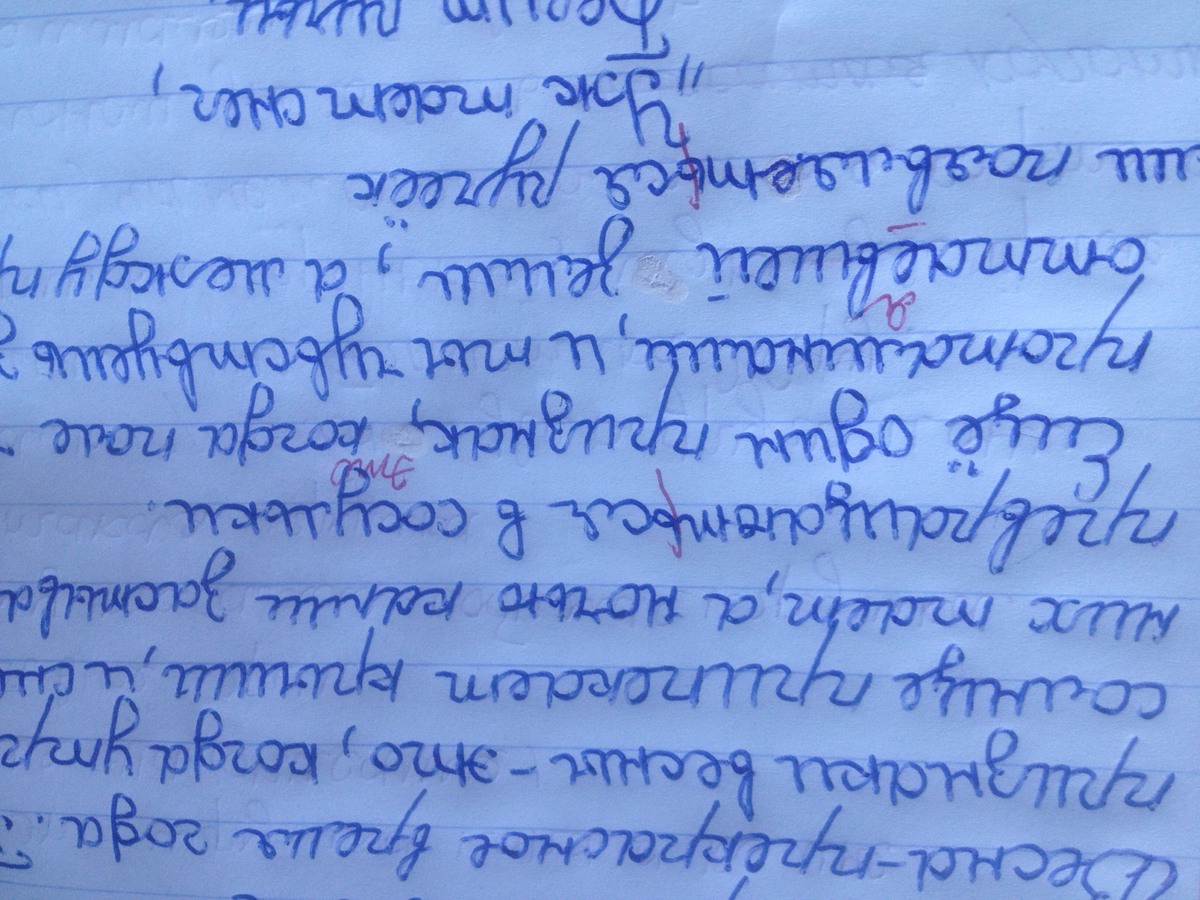 Весна-прекрасное время года.
признаки весны - это, когда утр
солнце припекает крыши, и сне
них тает, а ночью капли застыва
превращаються в сосульки.
это
Ещё один признак, когда поле
проталинами, и ты чувствуешь з
а
оттаевшей земли", а между п
ми появляеться ручеёк
"Уже тает снег,
бегут ручьи,